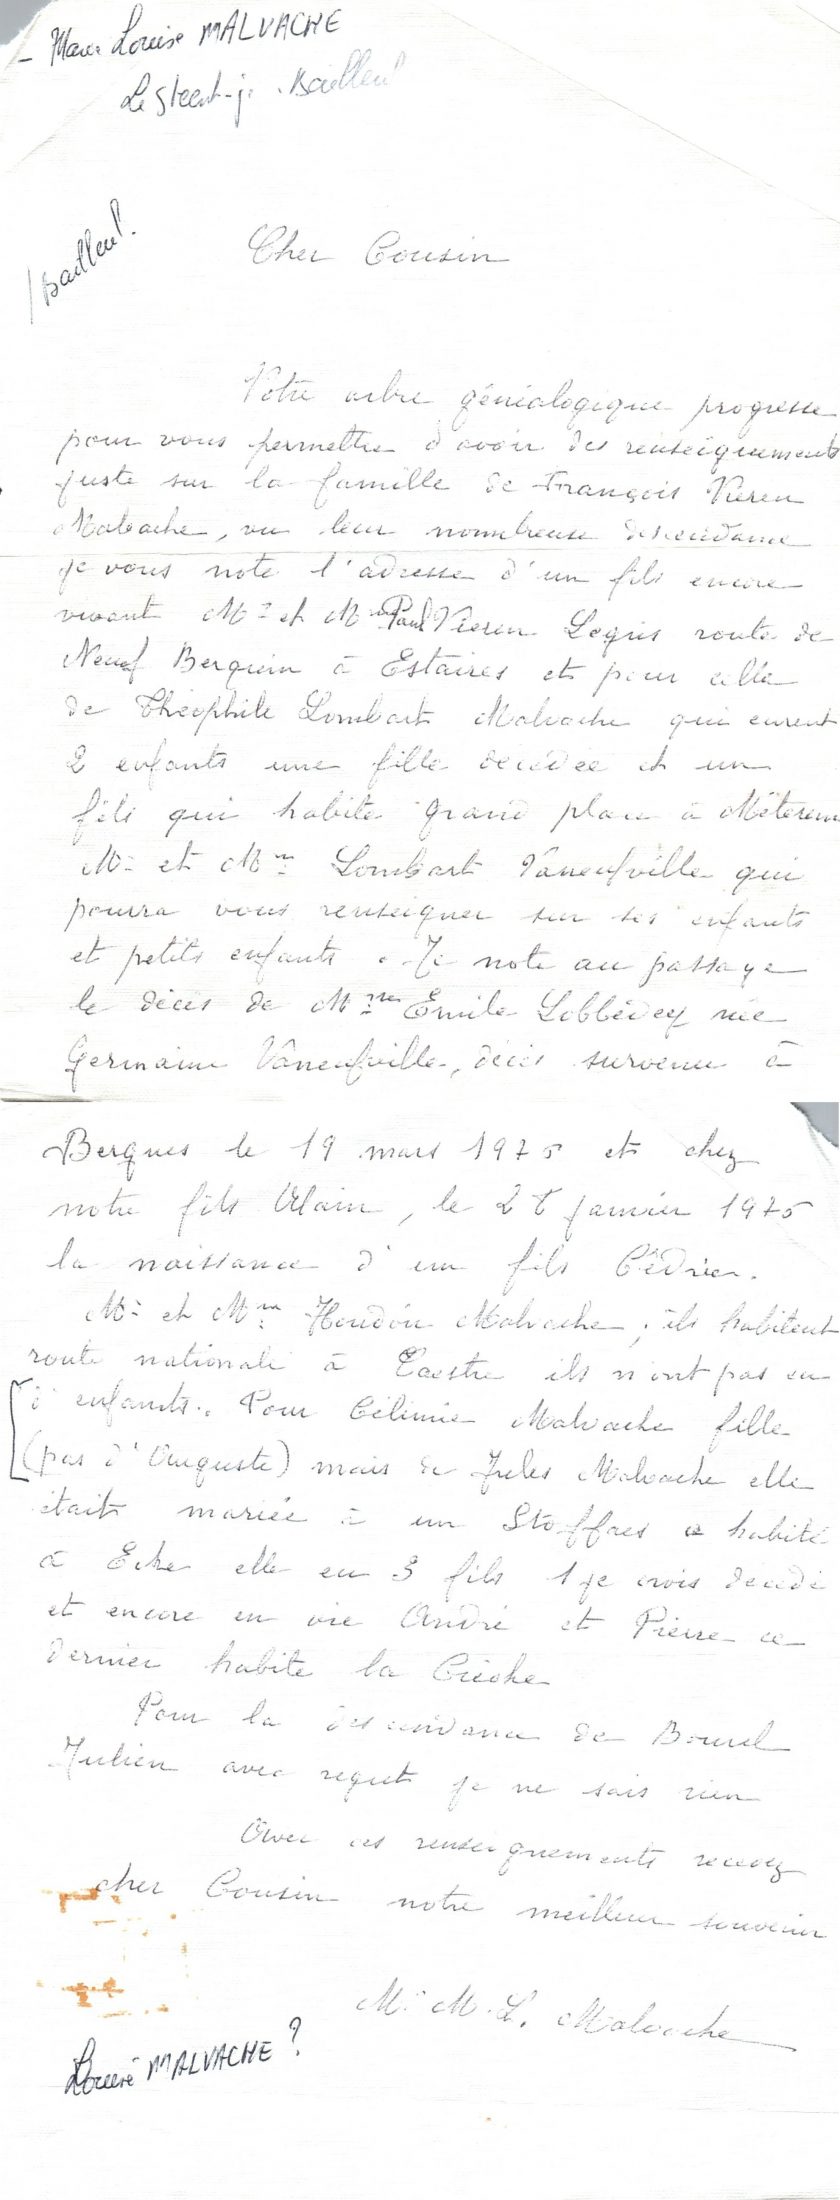 - Marie Louise MALVACHE
Le Steent-je. Bailleul
/Bailleul.
Cher Cousin
Votre arbre généalogique progresse
pour vous permettre d'avoir des renseignements
juste sur la famille de François Vieren
Malvache, vu leur nombreuse descendance
je vous note l'adresse d'un fils encore
vivant Mr et Mme Paul Vieren Legris route de
Neuf Berquin à Estaires et pour celle
de Théophile Lombart Malvache qui eurent
2 enfants une fille décédée et un
fils qui habite grand place à Méteren
Mr et Mme Lombart Vaneufville qui
pourra vous renseigner sur ses enfants
et petits enfants. Je note au passage
le décès de Mme Emile Lobbédey née
Germaine Vaneufville, décès survenu à
Bergues le 19 mars 1975 et chez
notre fils Alain, le janvier 1975
la naissance d'un fils Cédric.
Mr et Mme Houdon Malvache, ils habitent
route nationale à Caestre ils n'ont pas eu
d'enfants. Pour Célinie Malvache fille
(pas d'Auguste) mais de Jules Malvache elle
était mariée à un Stoffaes a habité
à Ecke elle eu 3 fils 1 je crois décédé
et encore en vie André et Pierre ce
dernier habite la Crèche
Pour la descendance de Bourel
Julien avec regret je ne sais rien
Avec ces renseignements recevez
cher Cousin notre meilleur souvenir
M. M. L. Malvache
Louise MALVACHE ?